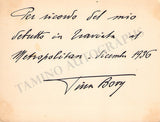 Per ricordo del mio
debutto in Traviata al
Metropolitan. Dicembre 1936
Vina Bovy
TAMINO AUTOGRAPHS